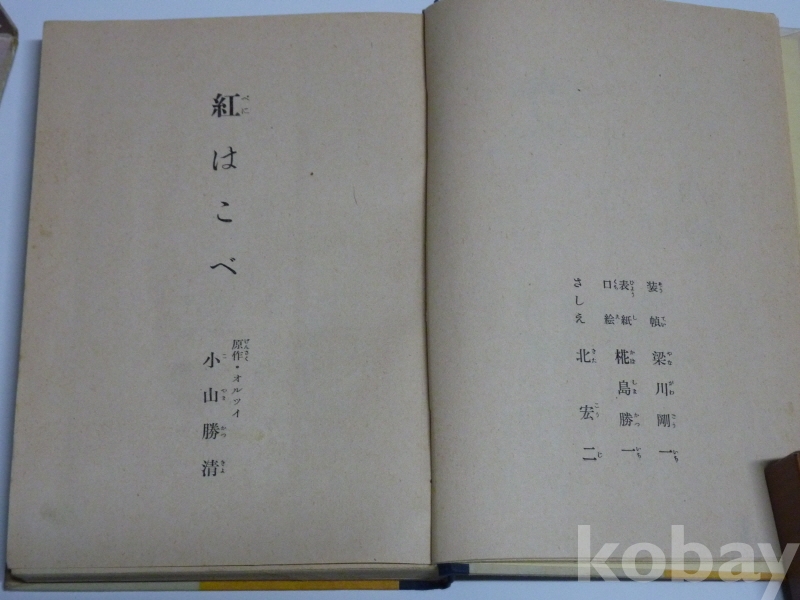 装幀 梁川剛一
表紙
口絵 椛島勝一
さしえ 北宏二
紅はこべ
原作・オルツイ
小山勝清
kobay